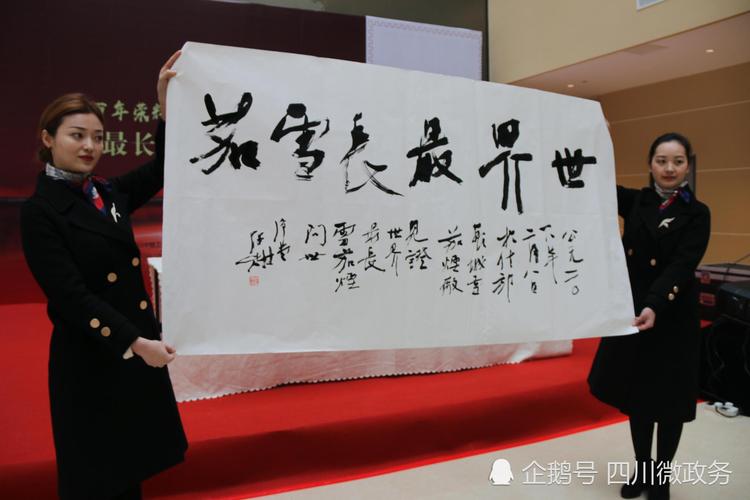 百年荣
最长
世界最長雪茄
公元二〇
一八年
二月八日
於什邡
長城雪
茄煙廠
見證
世界
最長
雪茄煙
问世
企鹅号 四川微政务